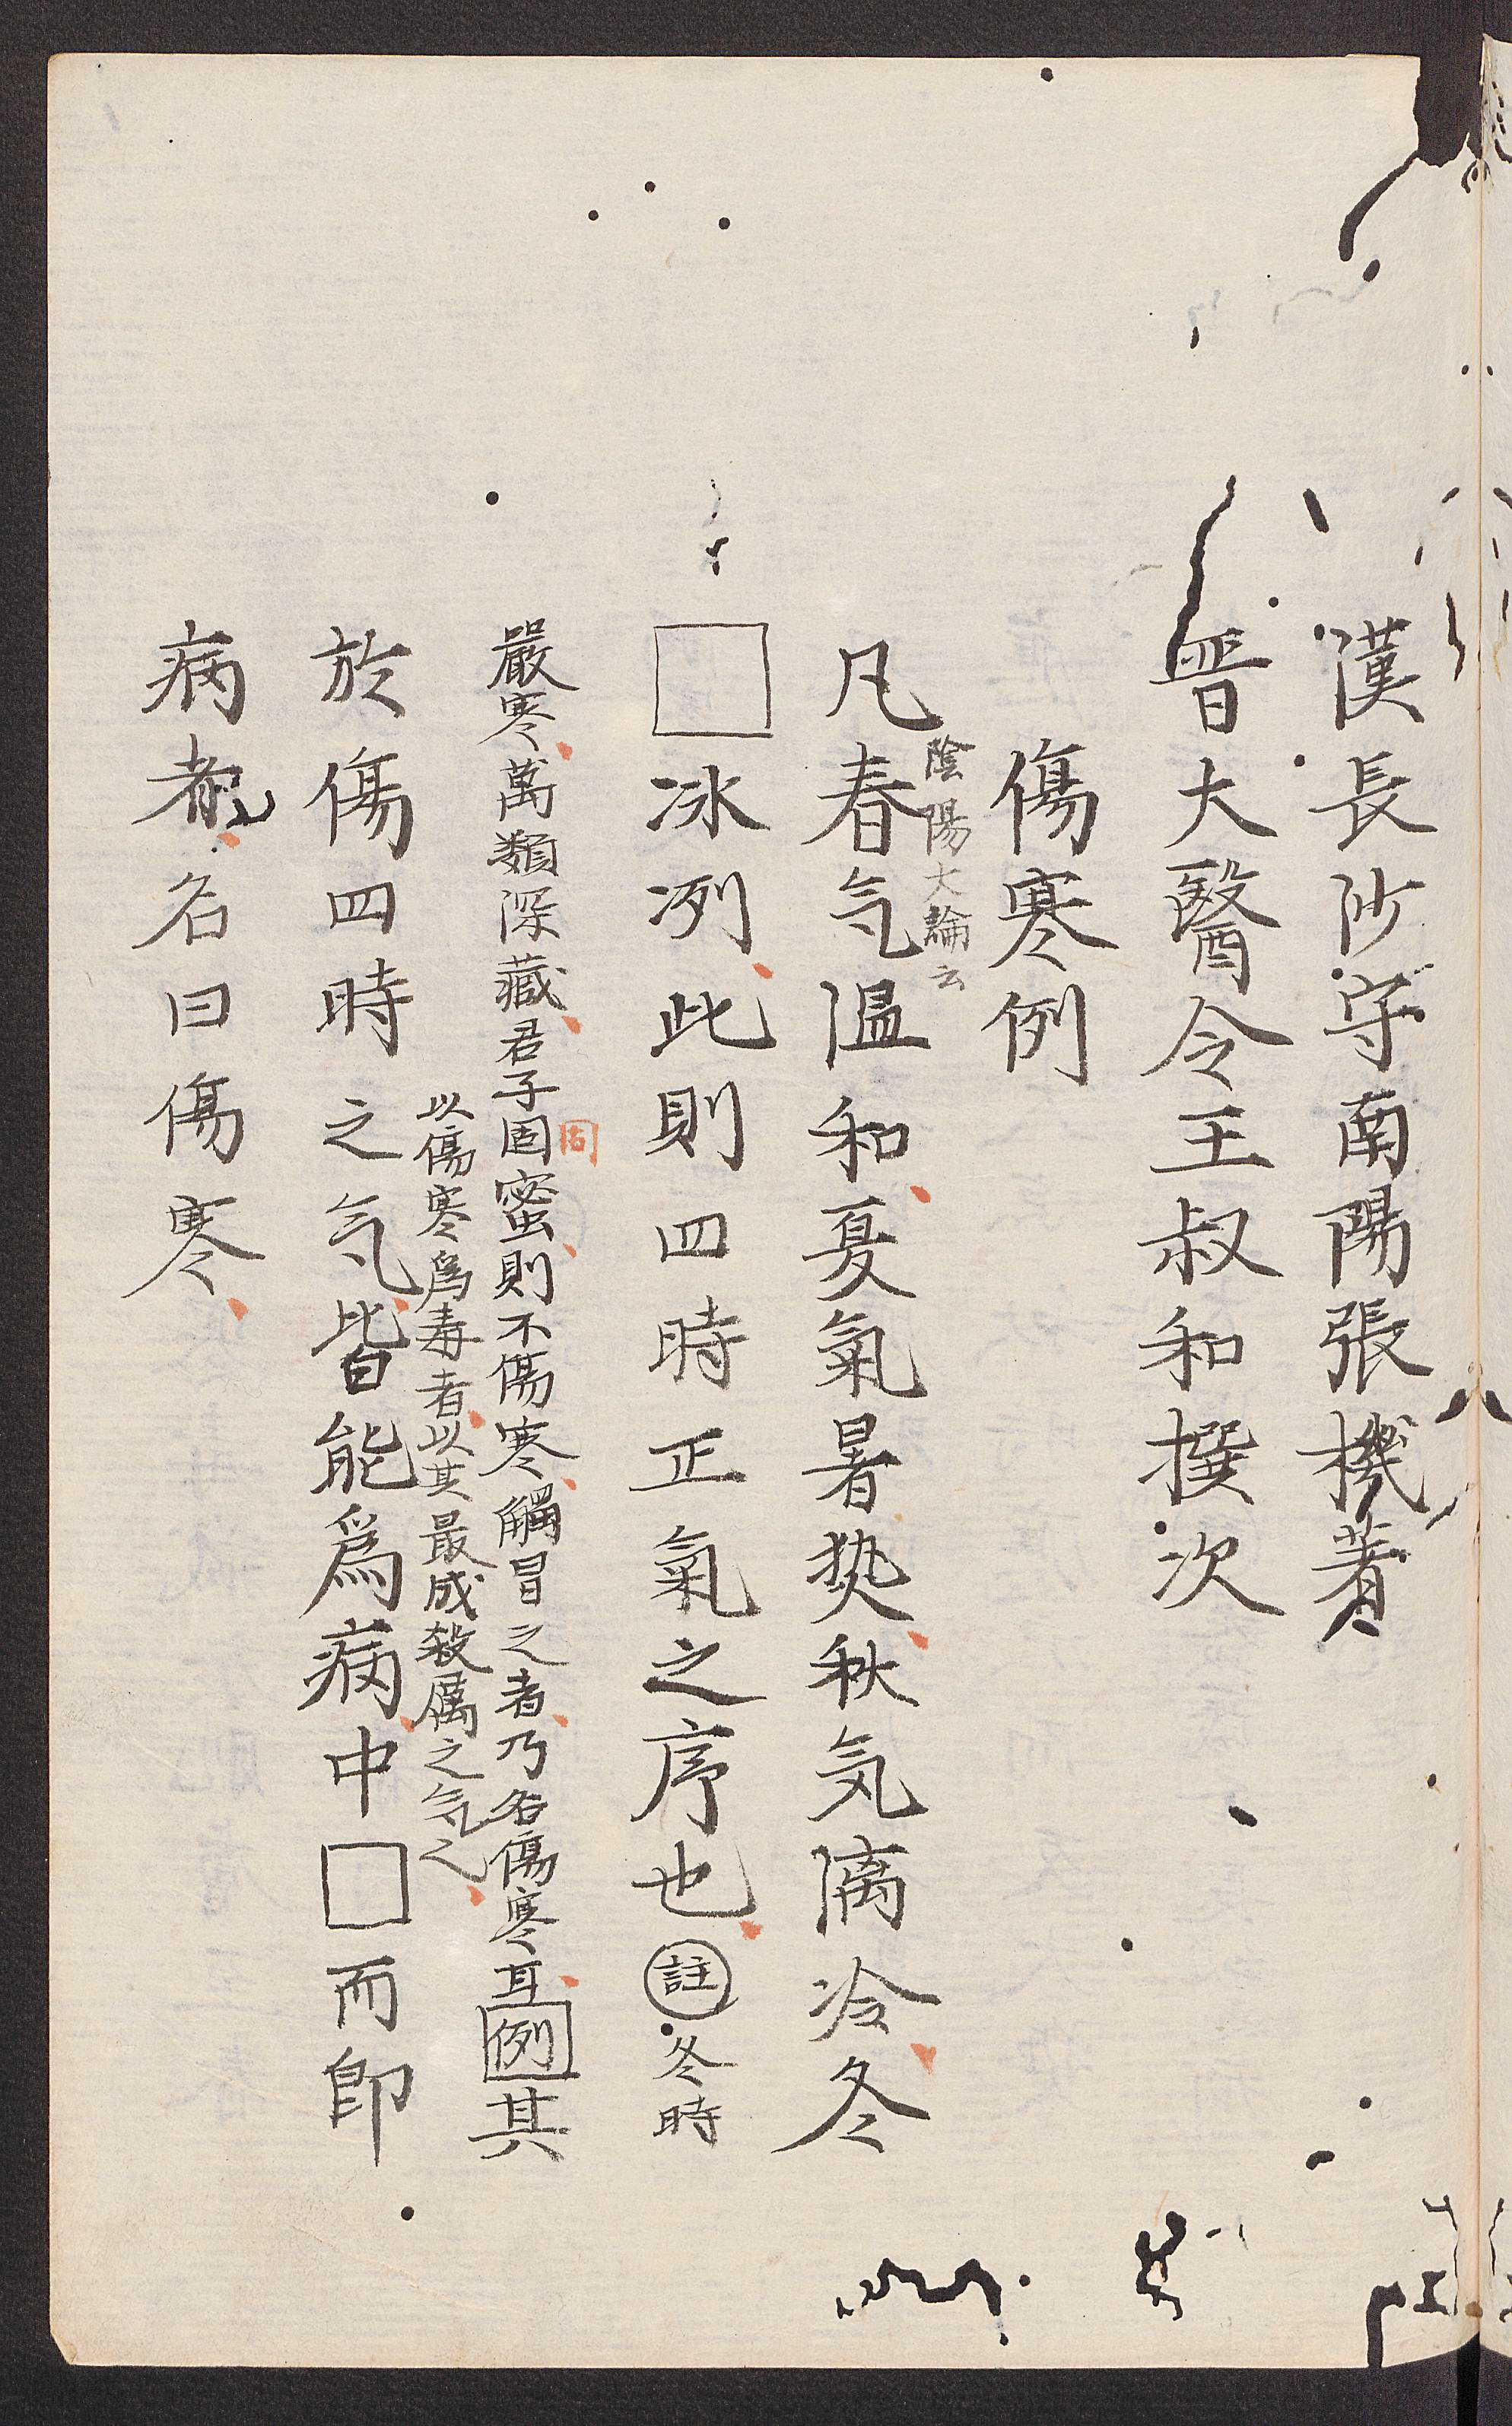 漢長沙守南陽張機著
晋大醫令王叔和撰次
傷寒例
陰陽大論云
凡春气温和夏氣暑热秋気凊冷冬
□冰冽此則四時正氣之序也註冬時
嚴寒萬類深藏君子固蜜則不傷寒觸冒之者乃名傷寒耳例其
固
以傷寒爲毒者以其最成殺厲之气也
於傷四時之气皆能爲病中□而即
病者名曰傷寒